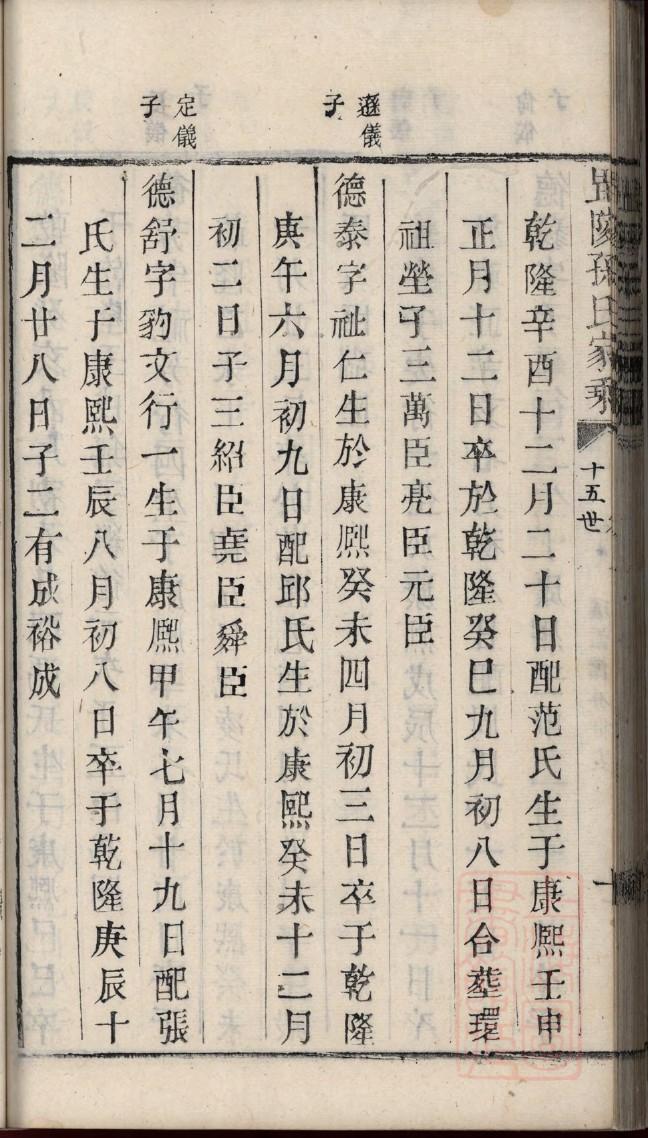 毘陵孫氏家乘
十五世
乾隆辛酉十二月二十日配范氏生于康熙壬申
正月十二日卒於乾隆癸巳九月初八日合塟環
祖塋子三萬臣亮臣元臣
遜儀
子
德泰字祉仁生於康熙癸未四月初三日卒于乾隆
庚午六月初九日配邱氏生於康熙癸未十二月
初二日子三紹臣堯臣舜臣
定儀
子
德舒字豹文行一生于康熙甲午七月十九日配張
氏生于康熙壬辰八月初八日卒于乾隆庚辰十
二月廿八日子二有成裕成